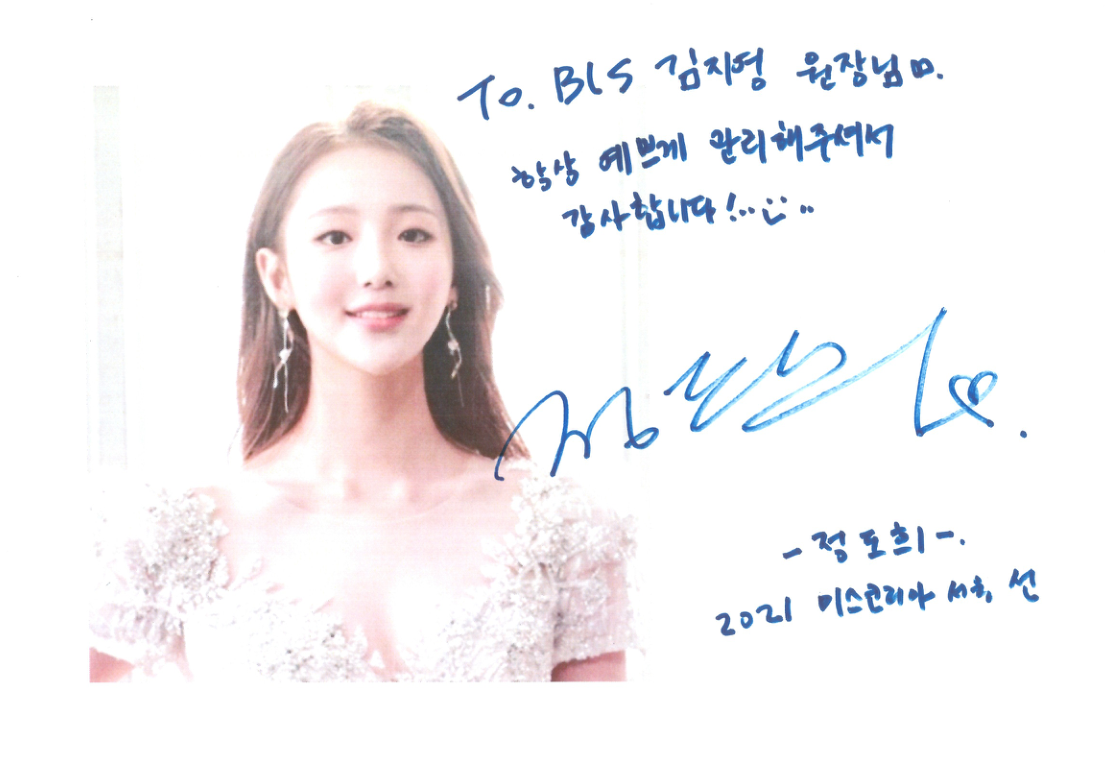 To. BLS 김지영 원장님ㅁ.
항상 예쁘게 관리해주셔서
감사합니다!..
- 정도희 -.
2021 미스코리아 서울 선